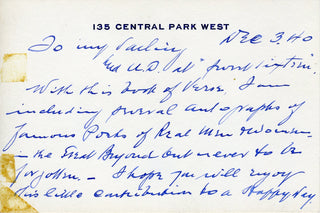 135 CENTRAL PARK WEST
Dec 3. 40
To my Darling
at "Sweet Sixteen".
With this book of Verse, I am
including several autographs of
famous Poets of Real Men & Women
in the Great Beyond but never to be
forgotten. - I hope you will enjoy
this little contribution to a Happy Day.